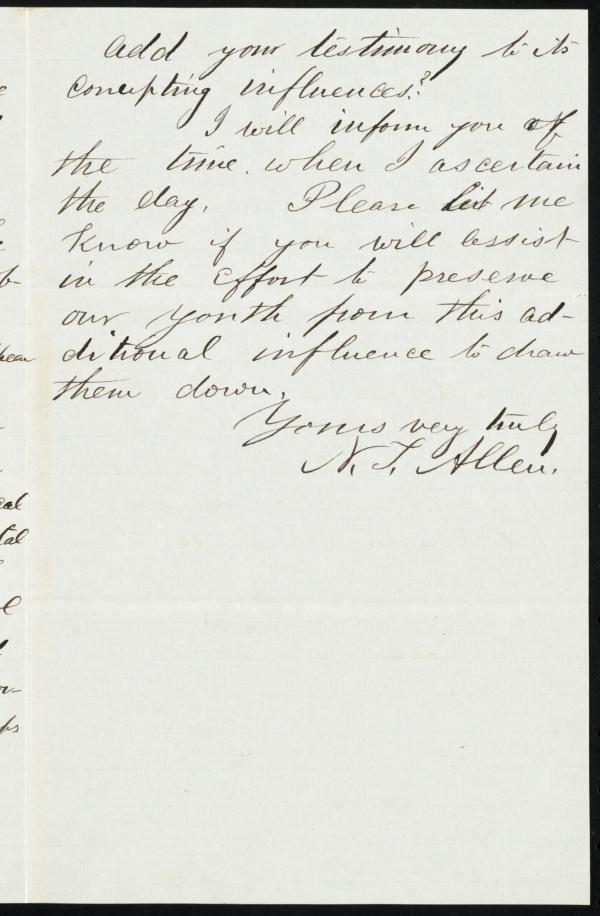 add your testimony to its
corrupting influences?
I will inform you of
the time when I ascertain
the day. Please let me
know if you will assist
in the effort to preserve
our youth from this ad-
ditional influence to draw
them down.
Yours very truly
N. T. Allen.